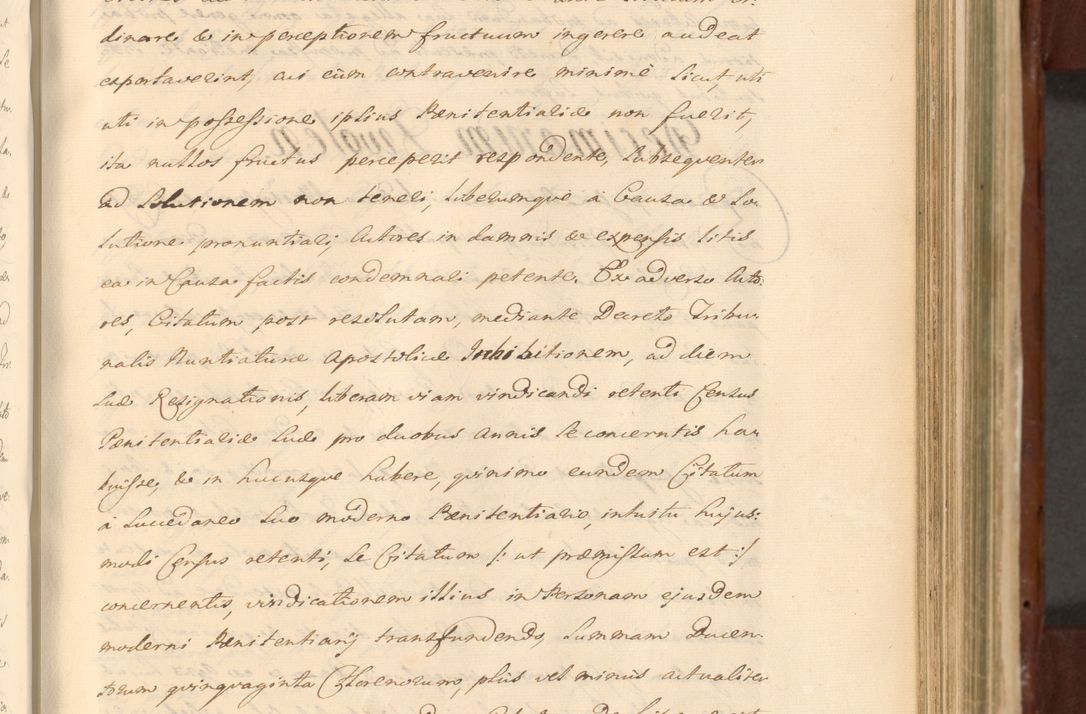 dinare & in perceptionem fructuum ingerere audeat
exportaverint, cui cùm contravenire minimè licuit, uti
uti in possessione ipsius Pænitentialiæ non fuerit,
ita nullos fructus perceperit respondente, subsequenter
ad solutionem non teneri, liberumque à Causa & So-
lutione pronuntiari, Actores in damnis & expensis litis
ea in Causa factis condemnari petente. Ex adverso Acto-
res, Citatum post resolutam, mediante Decreto Tribu-
nalis Nuntiaturæ Apostolicæ Inhibitionem, ad diem
suæ Resignationis, liberam viam vindicandi retenti Census
Pænitentialiæ suæ pro duobus Annis se concerntis ha-
buisse, & in hucusque habere, quinimo eundem Citatum
à Succedaneo suo moderno Pænitentiario, intuitu hujus:
modi Census retenti, se Citatum /: ut præmissum est :/
concernentis, vindicationem illius in Personam ejusdem
moderni Pænitentiarij transfundendo, Summam Ducen-
torum quinquaginta Florenorum, plus vel minus actualiter